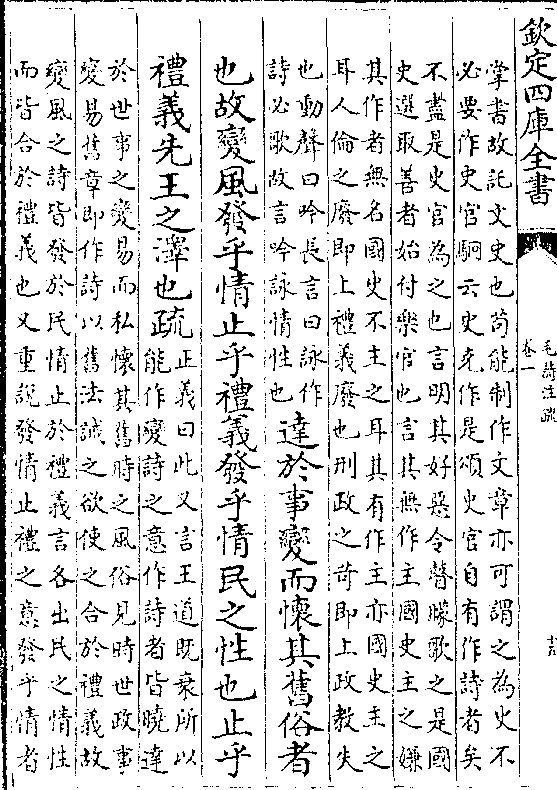 欽定四庫全書
毛詩注疏
卷一
十五
掌書故託文史也苟能制作文章亦可謂之為史不
必要作史官駉云史克作是頌史官自有作詩者矣
不盡是史官為之也言明其好惡令瞽矇歌之是國
史選取善者始付樂官也言其無作主國史主之嫌
其作者無名國史不主之耳其有作主亦國史主之
耳人倫之廢即上禮義廢也刑政之苛即上政教失
也動聲曰吟長言曰詠作
詩必歌故言吟詠情性也
達於事變而懷其舊俗者
也故變風發乎情止乎禮義發乎情民之性也止乎
禮義先王之澤也疏
正義曰此又言王道既衰所以
能作變詩之意作詩者皆曉達
於世事之變易而私懷其舊時之風俗見時世政事
變易舊章即作詩以舊法誡之欲使之合於禮義故
變風之詩皆發於民情止於禮義言各出民之情性
而皆合於禮義也又重說發情止禮之意發乎情者